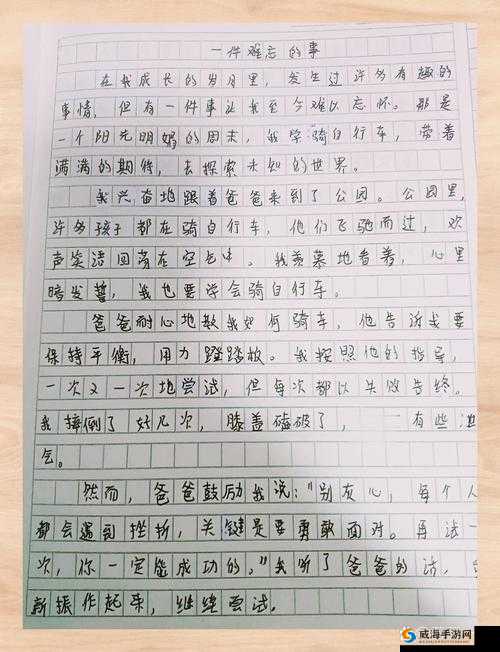 一件难忘的事
在我成长的岁月里，发生过许多有趣的
事情，但有一件事让我至今难以忘怀。那是
一个阳光明媚的周末，我学骑自行车，带着
满满的期待，去探索未知的世界。
我兴奋地跟着爸爸来到了公园。公园里，
许多孩子都在骑自行车，他们飞驰而过，欢
声笑语回荡在空气中。我羡慕地看着，心里
暗发誓，我也要学会骑自行车。
爸爸耐心地教我如何骑车，他告诉我要
保持平衡，用力蹬踏板。我按照他的指导，
一次又一次地尝试，但每次都以失败告终。
我摔倒了好几次，膝盖磕破了，一有些泄
气。
然而，爸爸鼓励我说："别灰心，每个人
都会遇到挫折，关键是要勇敢面对。再试一
次，你一定能成功的。"我听了爸爸的话，
新振作起来，继续尝试。
威海手游网